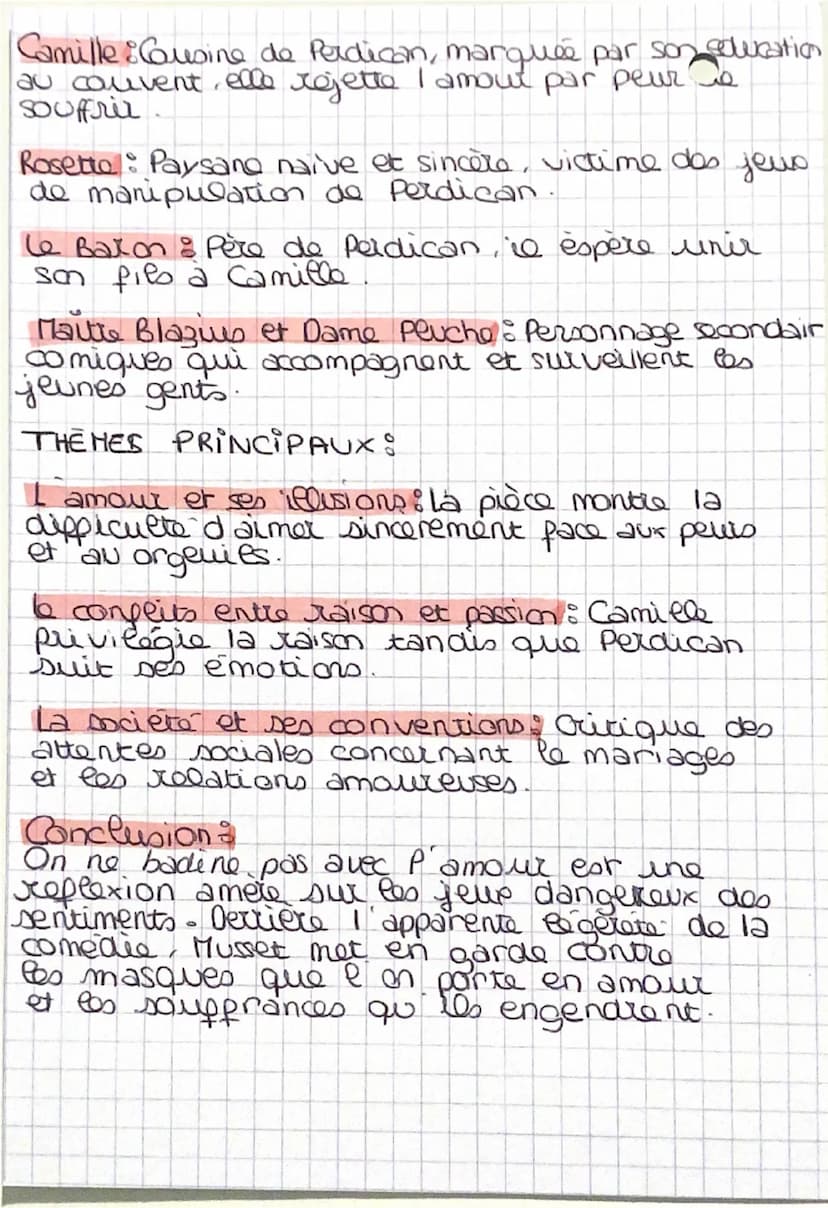 Camille : Cousine de Perdican, marquée par son education
au couvent, elle rejette l amour par peur de
souffrir.
Rosette : Paysane naïve et sincère, victime des jeux
de manipulation de Perdican.
Le Baron : Père de Perdican, il èspère unir
son fils à Camille.
Maître Blazius et Dame Pluche : Personnage secondair
comiques qui accompagnent et surveillent les
jeunes gents.
THÈMES PRINCIPAUX :
L'amour et ses illusions : La pièce montre la
difficulté d'aimer sincerement face aux peurs
et au orgeuils.
le conflits entre raison et passion : Camille
privilégie la raison tandis que Perdican
suit ses émotions.
La société et ses conventions : Critique des
attentes sociales concernant le mariages
et les relations amoureuses.
Conclusion :
On ne badine pas avec l'amour est une
reflexion amère sur les jeux dangereux des
sentiments. Derrière l'apparente légèreté de la
comédie, Musset met en garde contre
les masques que l'on porte en amour
et les souffrances qu'ils engendrent.